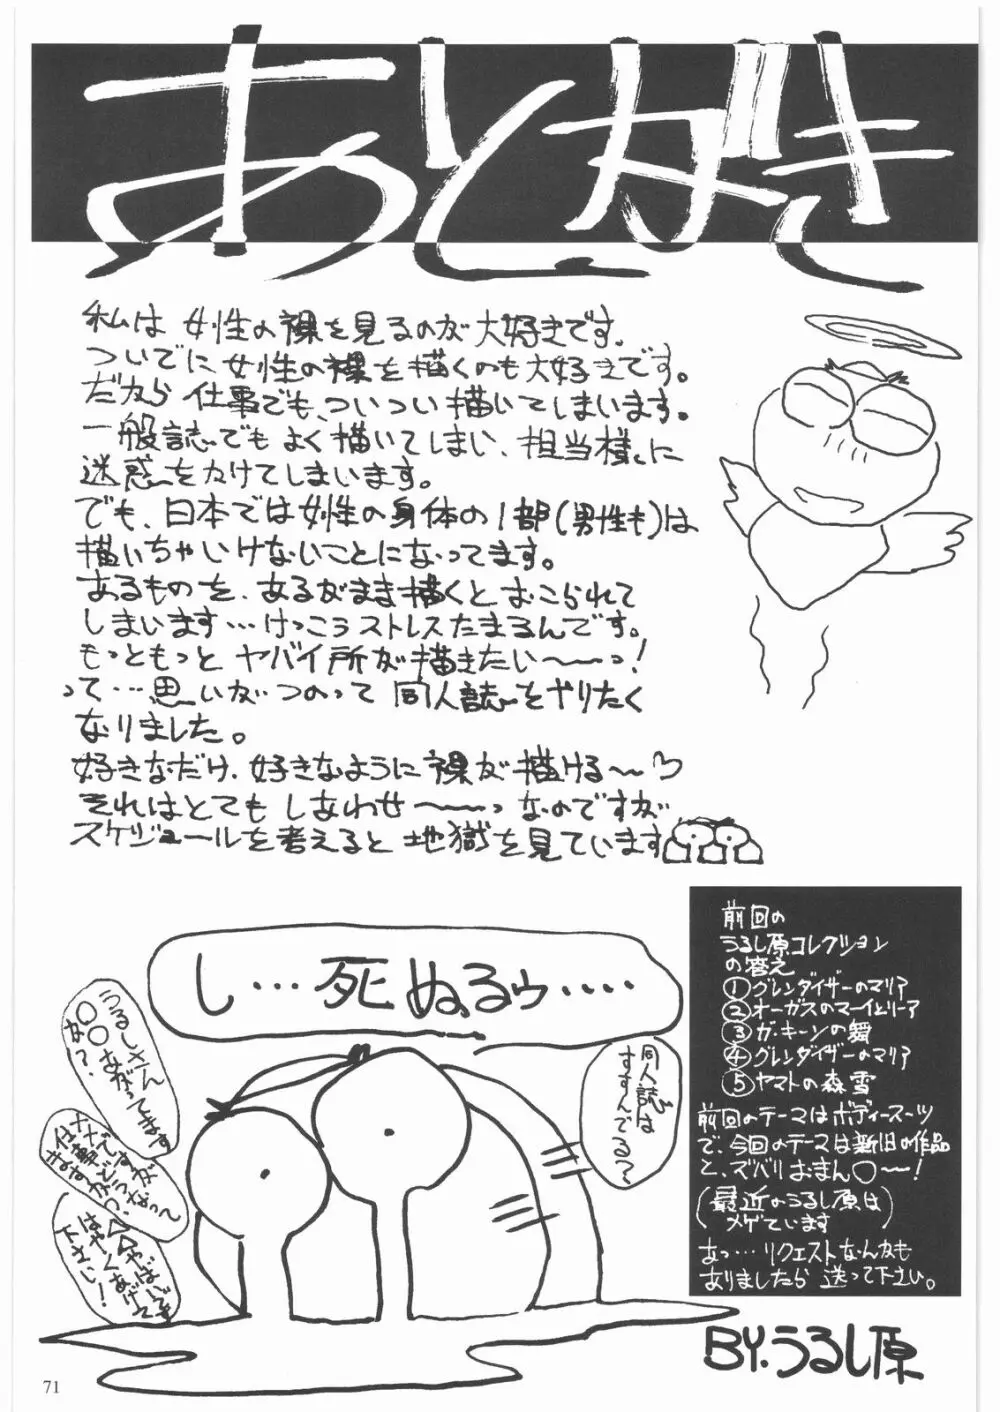 あとがき
私は女性の裸を見るのが大好きです。
ついでに女性の裸を描くのも大好きです。
だから仕事でも、ついつい描いてしまいます。
一般誌でもよく描いてしまい、担当様に
迷惑をかけてしまいます。
でも、日本では女性の身体の1部(男性も)は
描いちゃいけないことになってます。
あるものを、あるがまま描くとおこられて
しまいます…けっこうストレスたまるんです。
もっともっとヤバイ所が描きたい〜〜っ!
って…思いがつのって同人誌をやりたく
なりました。
好きなだけ、好きなように裸が描ける〜♡
それはとてもしあわせ〜〜っなのですが
スケジュールを考えると地獄を見ています
し…死ぬるゥ‥‥‥
うるしさん
〇〇あがってます
か?
仕事
はやく△△やばいです
あげて
下さい!
同人誌は
すすんでる?
前回の
うるし原コレクション
の答え
①グレンダイザーのマリア
②オーガスのマーイとリーア
③ガ・キーンの舞
④グレンダイザーのマリア
⑤ヤマトの森雪
前回のテーマはボディースーツ
で、今回のテーマは新旧の作品
と、ズバリおまん〇〜!
(最近のうるし原は
メゲています)
あっ…リクエストなんかも
ありましたら送って下さい。
BY.うるし原
71